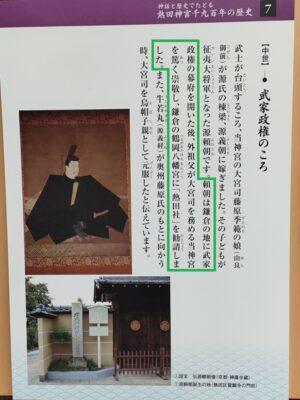 神話と歴史でたどる
熱田神宮千九百年の歴史
7
【中世】
武家政権のころ
武士が台頭するころ、当神宮の大宮司藤原季範の娘（由良
御前）が源氏の棟梁、源義朝に嫁ぎました。その子どもが
征夷大将軍となった源頼朝です。頼朝は鎌倉の地に武家
政権の幕府を開いた後、外祖父が大宮司を務める当神宮
を篤く崇敬し、鎌倉の鶴岡八幡宮に「熱田社」を勧請しま
した。また、牛若丸（源義経）が奥州藤原氏のもとに向かう
時、大宮司を烏帽子親として元服したと伝えています。
①国宝 伝源頼朝像（京都・神護寺蔵）
②源頼朝誕生の地（熱田区誓願寺の門前）